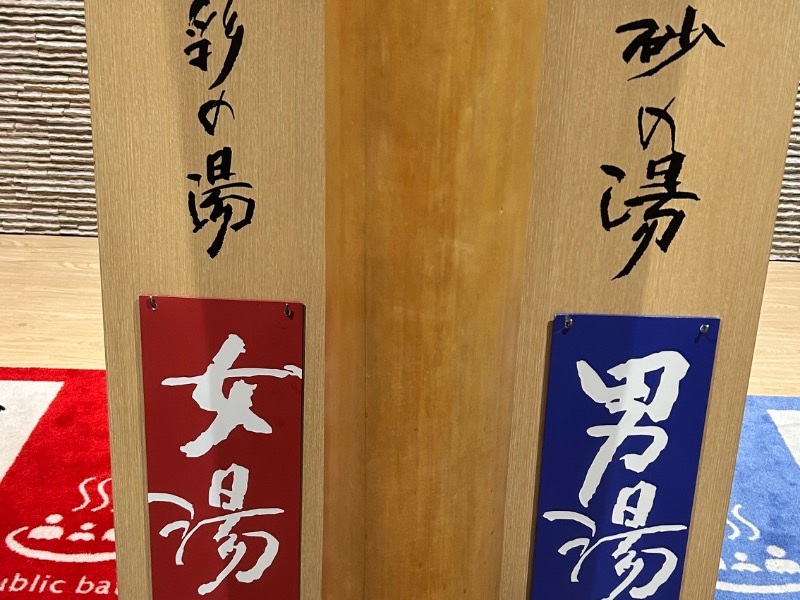 彩の湯
女湯
砂の湯
男湯
ublic ba